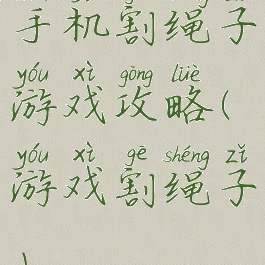 手机割绳子
yóu xì gōng lüè
游戏攻略(
yóu xì gē shéng zǐ
游戏割绳子
)